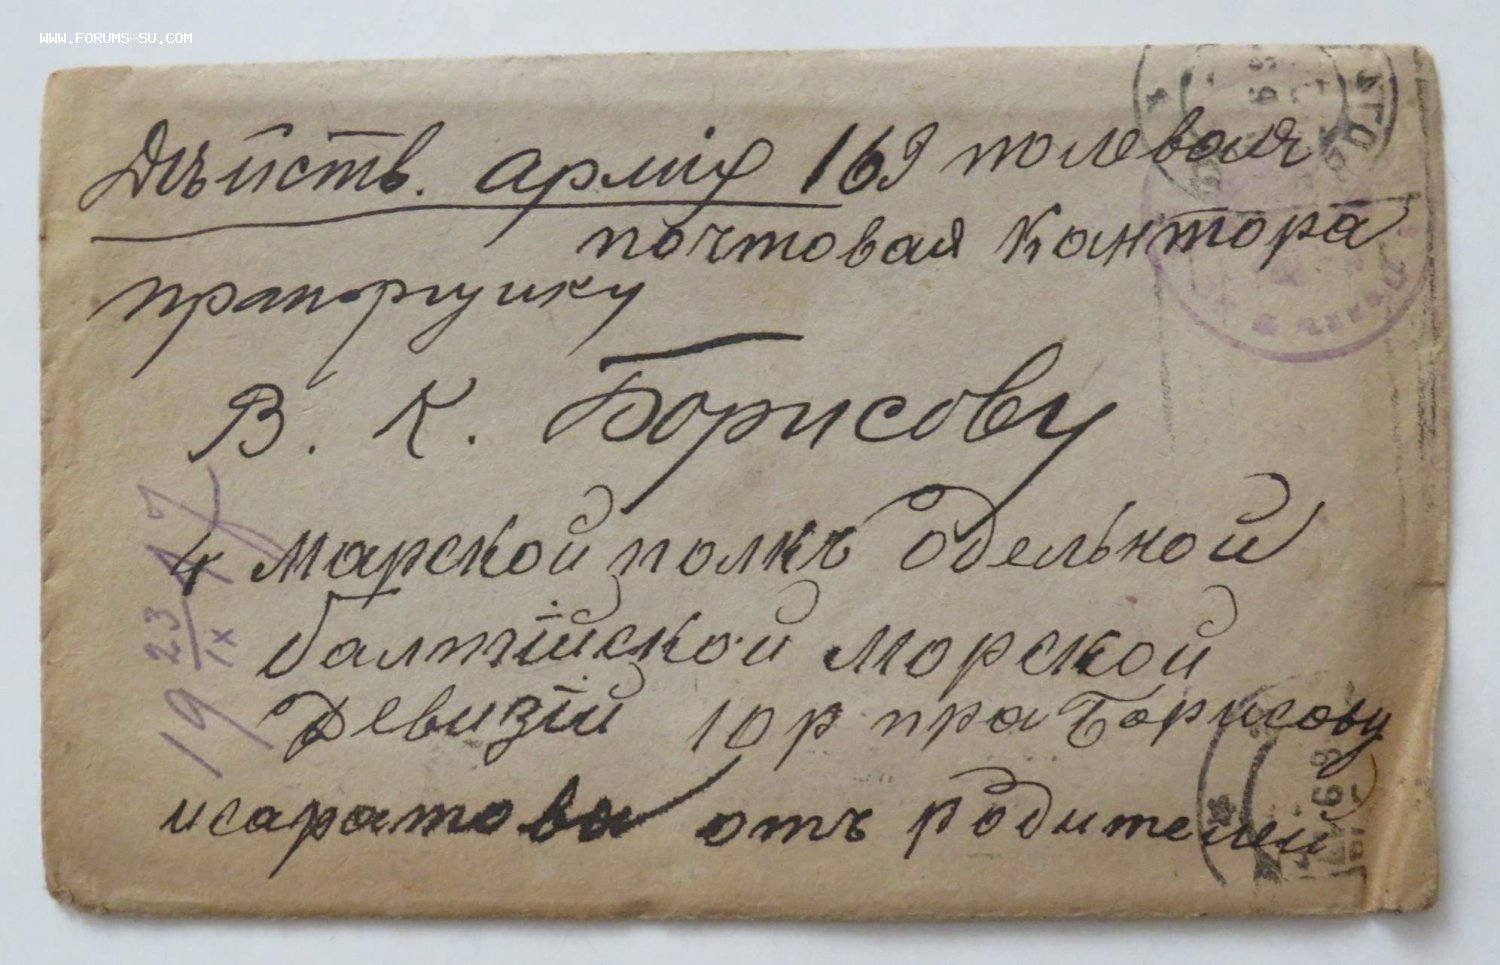 WWW.FORUMS-SU.COM
Дѣйств. армія 169 полевая
почтовая Кантора
прапоргшику
В. К. Борисову
4 марской полкъ одельной
балтийской морской
Девизіи 10 р пра Борисову
исаратова отъ родителей
19 23/IX 17